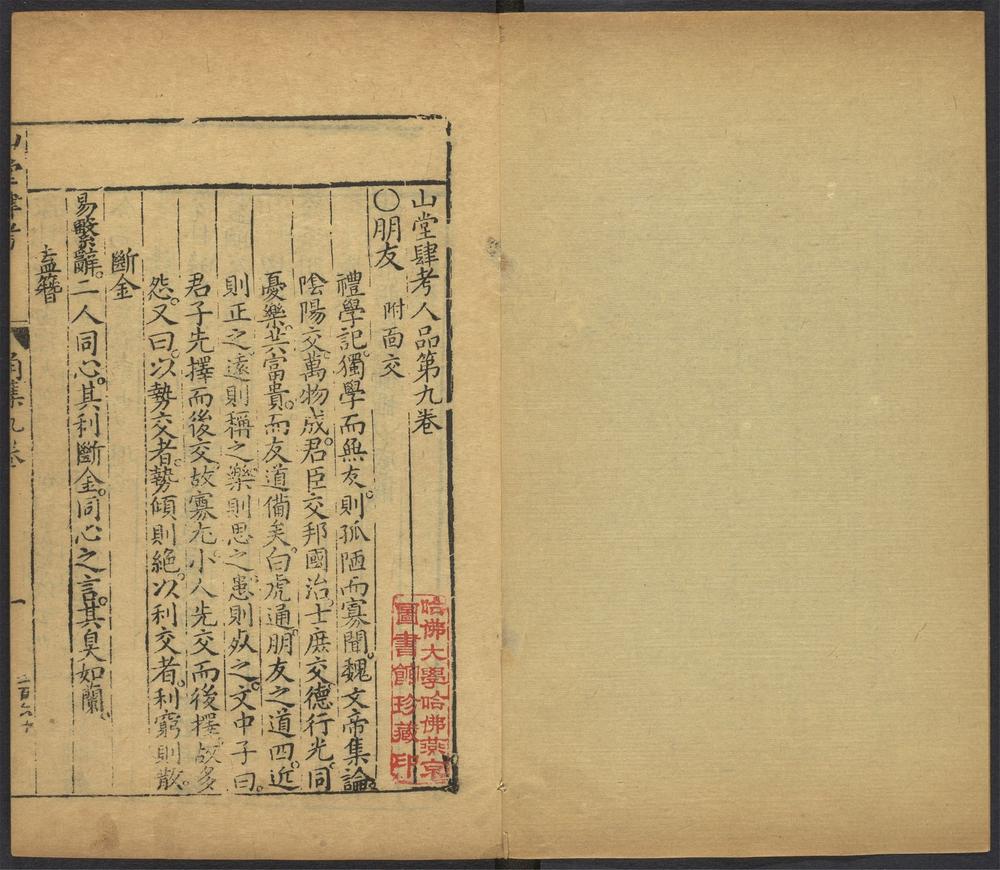 山堂肆考人品第九卷
〇朋友 附面交
禮學記獨學而無友則孤陋而寡聞魏文帝集論
陰陽交萬物成君臣交邦國治士庶交德行光同
憂樂共富貴而友道備矣白虎通朋友之道四近
則正之遠則稱之樂則思之患則死之文中子曰
君子先擇而後交故寡尤小人先交而後擇故多
怨又曰以勢交者勢傾則絕以利交者利窮則散
斷金
易繫辭二人同心其利斷金同心之言其臭如蘭
盍簪
山堂肆考
角集九卷
一
哈佛大學哈佛燕京
圖書館珍藏印